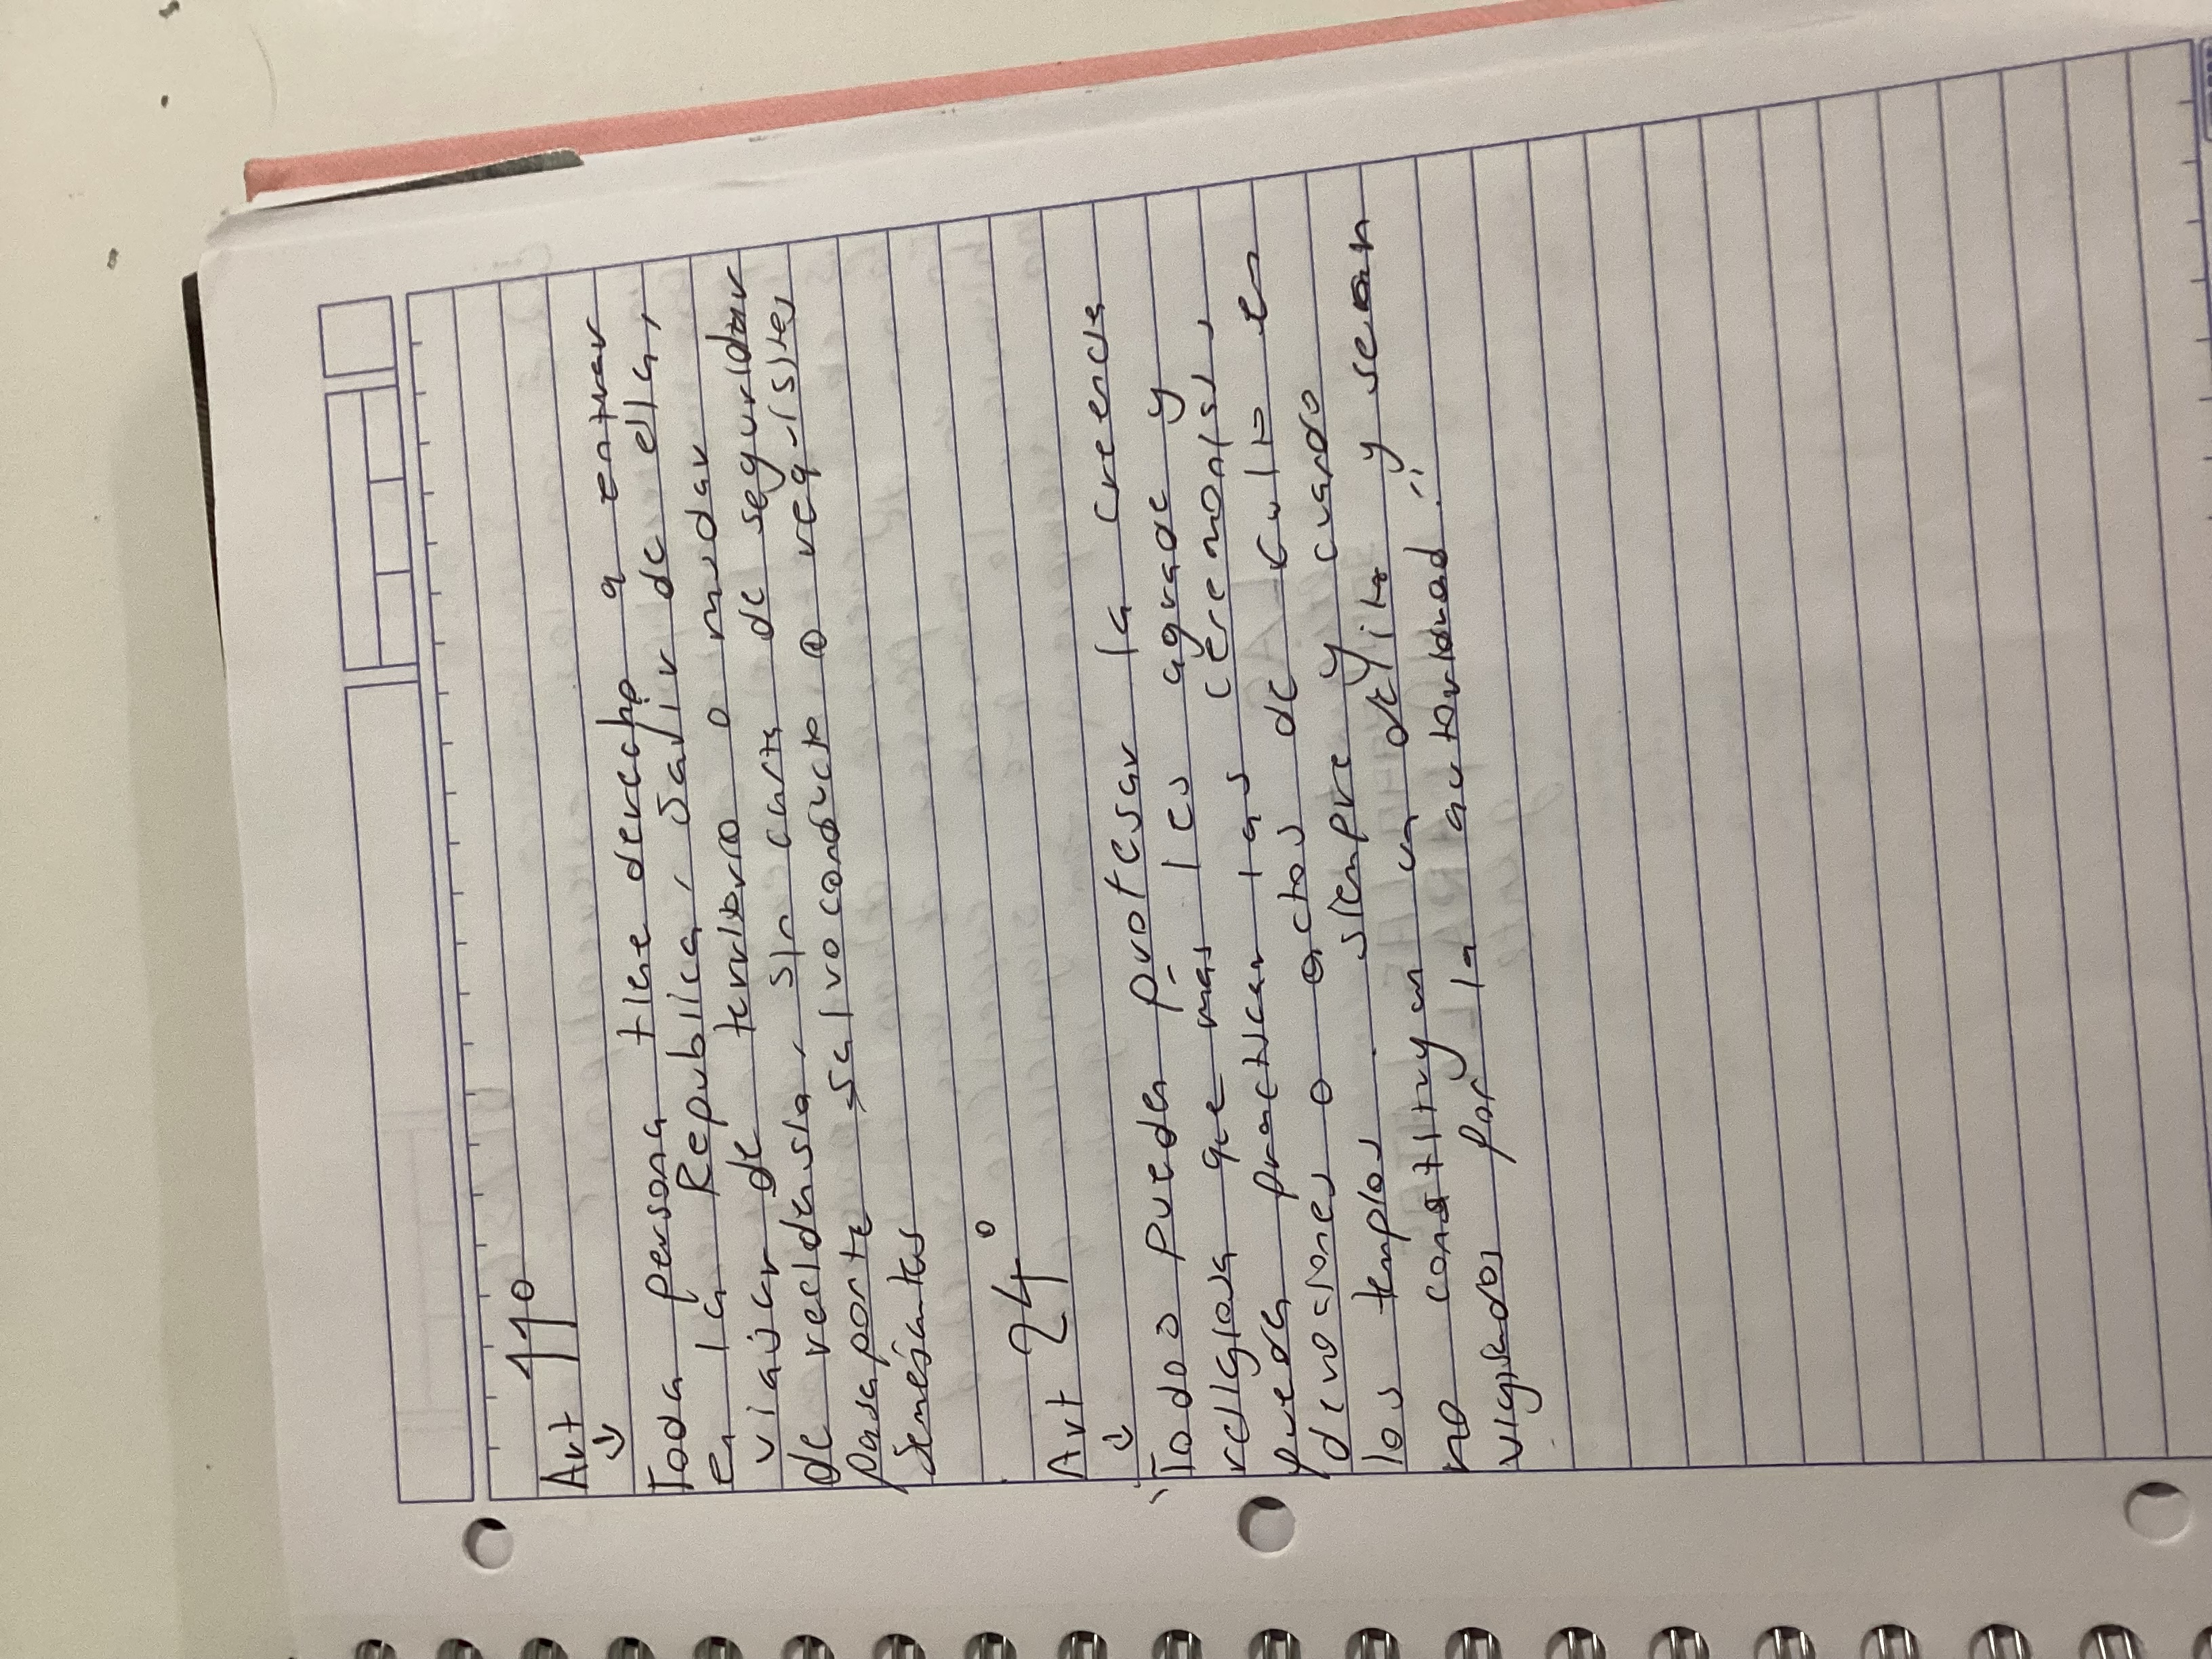 Art 11°
Toda persona tiene derecho a entrar
en la Republica, Salir de ella,
viajar de territorro o mudar
de recidensia, sin carta de seguridar
Pasaporte salvoconducto o reqisites
semejantes
Art 24°
Todos pueden profesar la creencia
religiosa que mas les agrade y
pueden practicar las ceremonias,
devosiones o actos de culto en
los templos. siempre y cuando
no constituyan un delito y sean
vigilados por la autoridad."